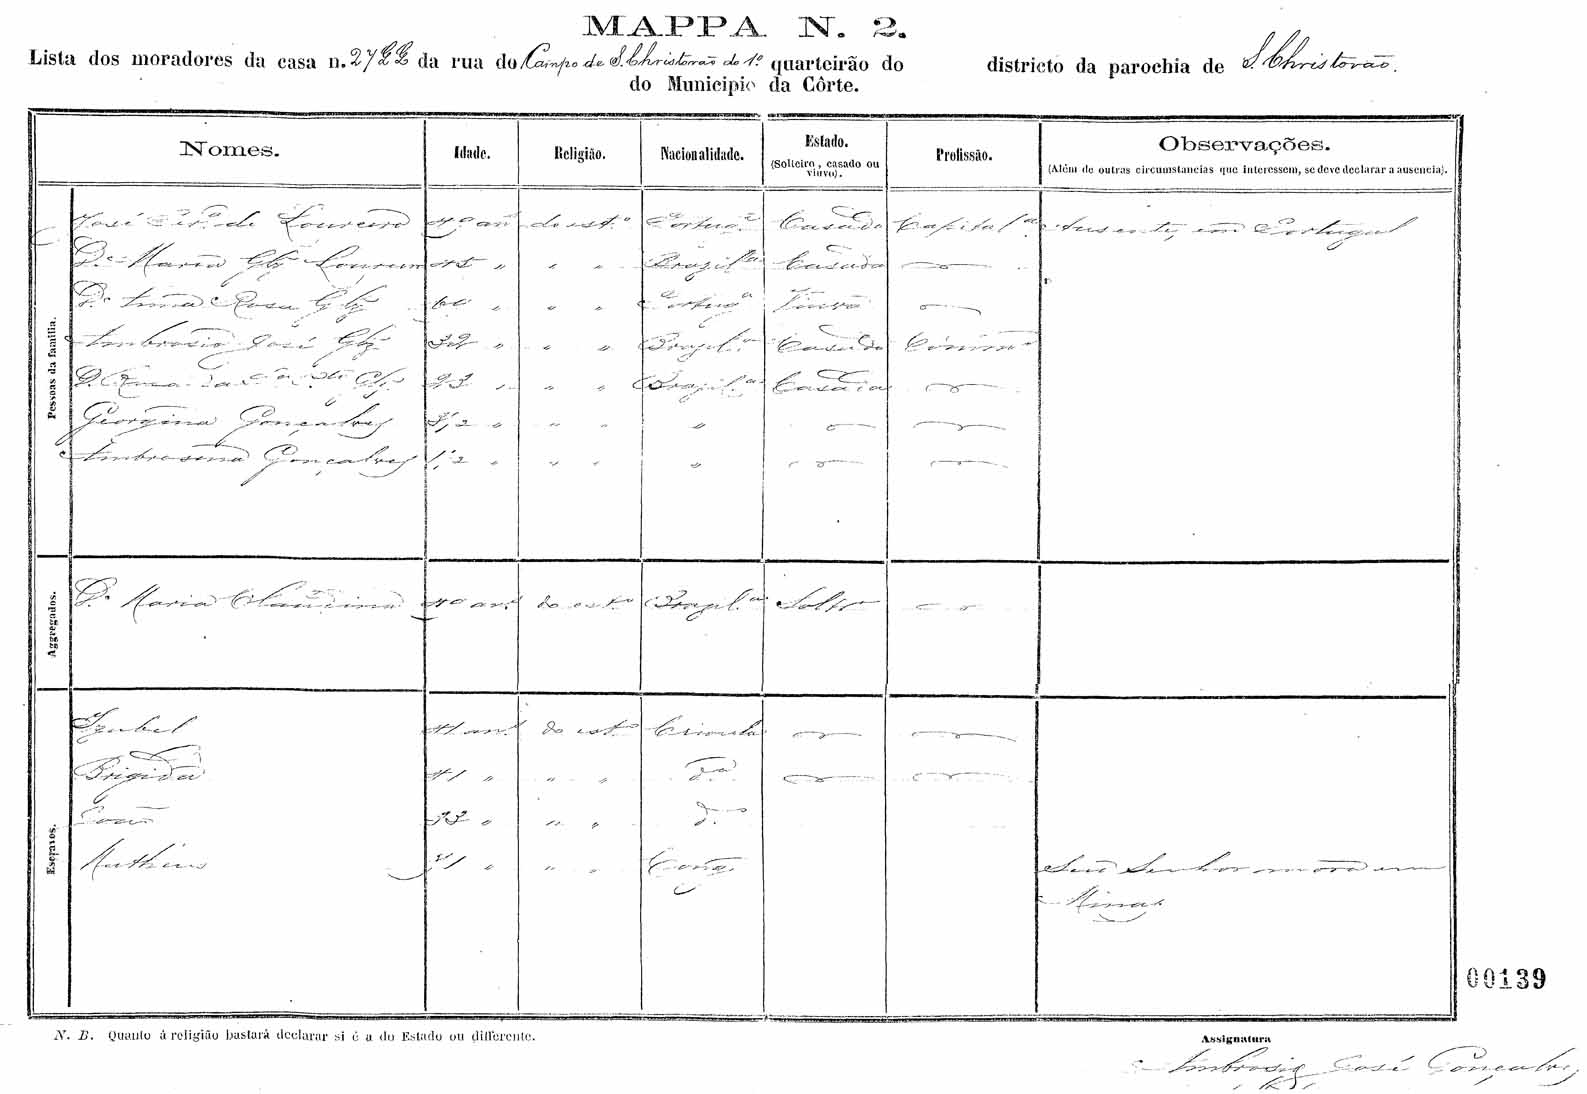 MAPPA N. 2.
Lista dos moradores da casa n. 27 da rua do Campo de S. Christovão do 1º quarteirão do districto da parochia de S. Christovão.
do Municipio da Côrte.
Nomes. Idade. Religião. Nacionalidade. Estado. Profissão. Observações.
(Solteiro, casado ou viuvo). (Além de outras circumstancias que interessem, se deve declarar a ausencia).
Pessoas da familia.
José de Loureiro 40 anˢ do estº Portugª Casado Capitalª Ausente, em Portugal
Dª Maria Glz Loureiro 45 " " " Brazilª Casada
Dª Anna Rosa Glz 60 " " Portugª Viuva
Ambrosio José Glz 32 " " " Brazilº Casado Commº
Dª Glz 23 " " " Brazilª Casada
Georgina Gonçalves 3½ " " " "
Ambrosina Gonçalves 1½ " " " "
Aggregados.
Dª Maria Claudina 40 anˢ do estº Brazilª Soltrª
Escravos.
Izabel 41 anˢ do estº Crioula
Brigida 41 " " " dª
João 33 " " " dº
Matheus 71 " " " Congo Seu Senhor mora em
Minas
00139
N. B. Quanto á religião bastará declarar si é a do Estado ou differente.
Assignatura
Ambrosio José Gonçalves